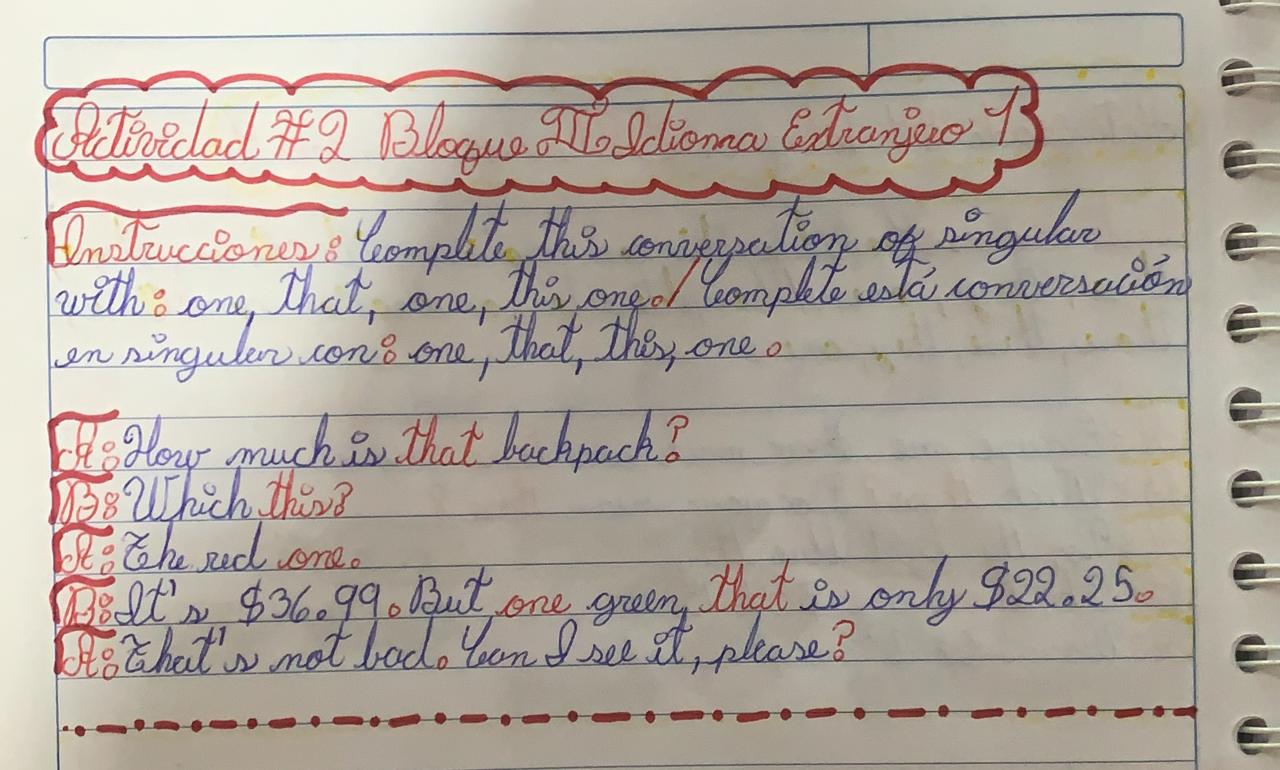 Actividad #2 Bloque III Idioma Extranjero 1
Instrucciones: Complete this conversation of singular
with: one, that, one, this, one./ Complete está conversación
en singular con: one, that, this, one.
A: How much is that backpack?
B: Which this?
A: The red one.
B: It's $36.99. But one green, that is only $22.25.
A: That's not bad. Can I see it, please?